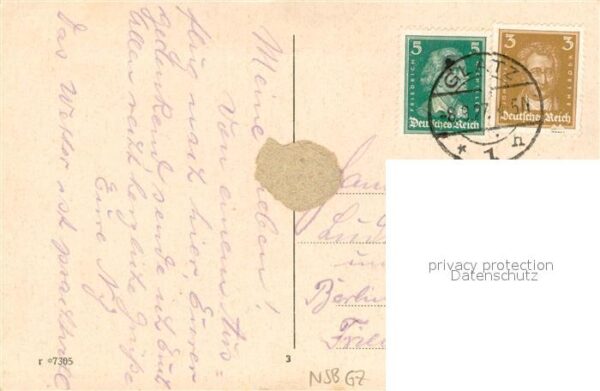 Meine Lieben!
Von einem Aus=
flug nach hier, Eurer
gedenkend sende ich Euch
allen recht herzliche Grüße
Eure
Das Wetter ist prachtvoll.
5 5
FRIEDRICH
Deutsches Reich
3 3
Deutsches Reich
GLATZ
* 1 n
Berlin
privacy protection
Datenschutz
r *7305
3
NSB GZ